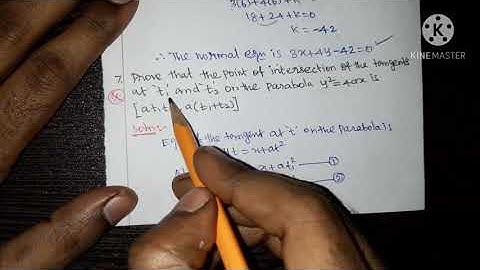 3(6)+4(6)+k=0
18+24+k=0
k=-42
∴ The normal eqn is 3x+4y-42=0
KINEMASTER
7. Prove that the point of intersection of the tangents
at 't₁' and 't₂' on the parabola y²=4ax is
[at₁t₂, a(t₁+t₂)]
Soln:
the tangent at 't' on the parabola is
yt=x+at²
x+at₁² ①
②